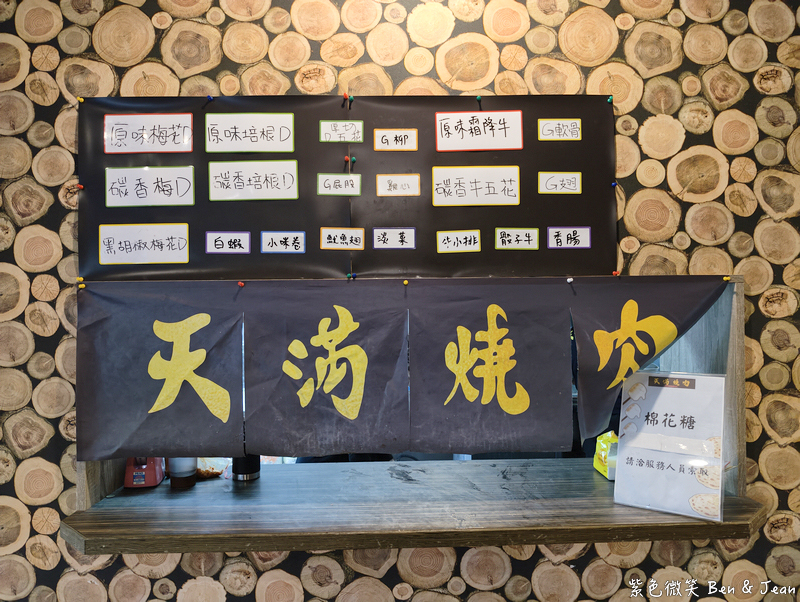 原味梅花D 原味培根D 厚切D五花 G柳 原味霜降牛 G軟骨
碳香梅D 碳香培根D G屁股 雞心 碳香牛五花 G翅
黑胡椒梅花D 白蝦 小咪卷 魟魚翅 淡菜 牛小排 骰子牛 香腸
天滿燒肉
天滿燒肉
棉花糖
請洽服務人員索取
紫色微笑 Ben & Jean